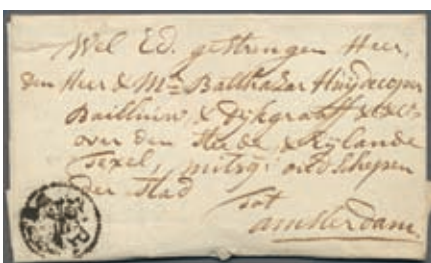 Wel Ed. gestrengen Heer,
den Heer & Mr. Balthazar Huijdecoper
Bailluw & Dijkgraaff &c&c
over den Stede & Eijlande
Texel, mitsg: oud Schepen
der Stad
Tot
amsterdam